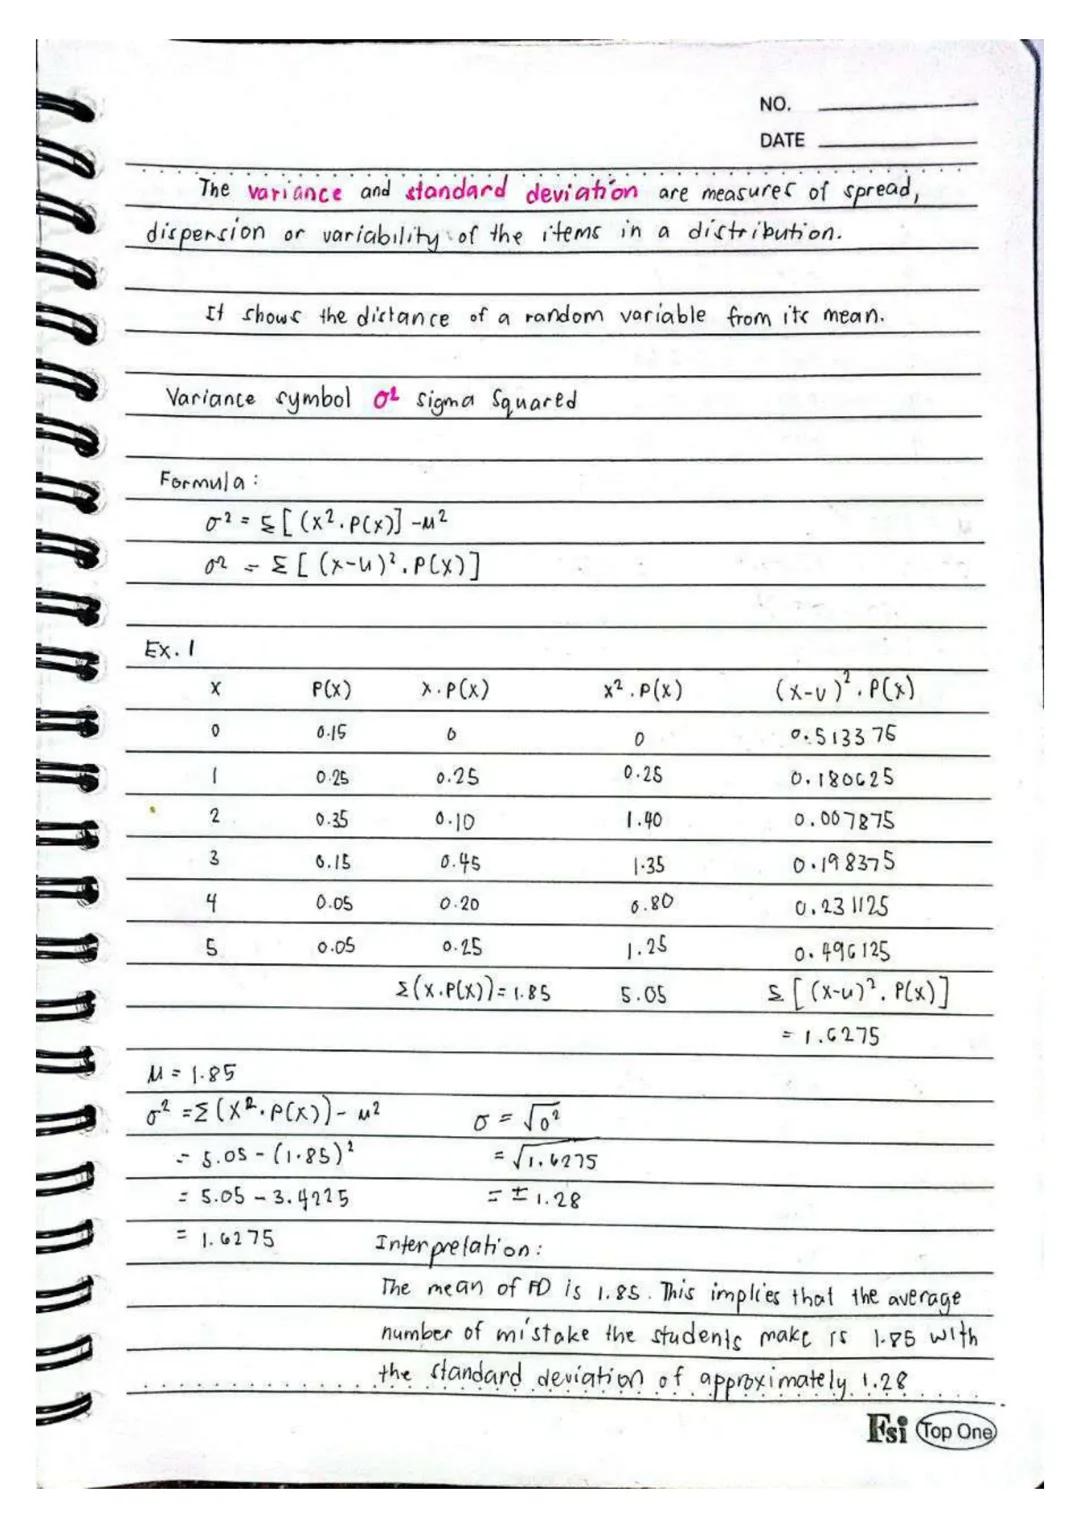 NO.
DATE
The variance and standard deviation are measures of spread,
dispersion or variability of the items in a distribution.
It shows the distance of a random variable from its mean.
Variance symbol σ² sigma squared
Formula:
σ² = Σ[(x².P(x)] -μ²
σ² = Σ[(x-u)².P(x)]
Ex. 1
X P(X) X.P(X) x².P(x) (x-u)².P(x)
0 0.15 0 0 0.513375
1 0.25 0.25 0.25 0.180625
2 0.35 0.10 1.40 0.007875
3 0.15 0.45 1.35 0.198375
4 0.05 0.20 0.80 0.231125
5 0.05 0.25 1.25 0.496125
Σ(X.P(X))= 1.85 5.05 Σ[(x-u)².P(x)]
= 1.6275
μ = 1.85
σ² =Σ(X².P(X))- μ² σ = √σ²
= 5.05 - (1.85)² = √1.6275
= 5.05 - 3.4225 = ± 1.28
= 1.6275 Interpretation:
The mean of PD is 1.85. This implies that the average
number of mistake the students make is 1.85 with
the standard deviation of approximately 1.28
Fsi Top One